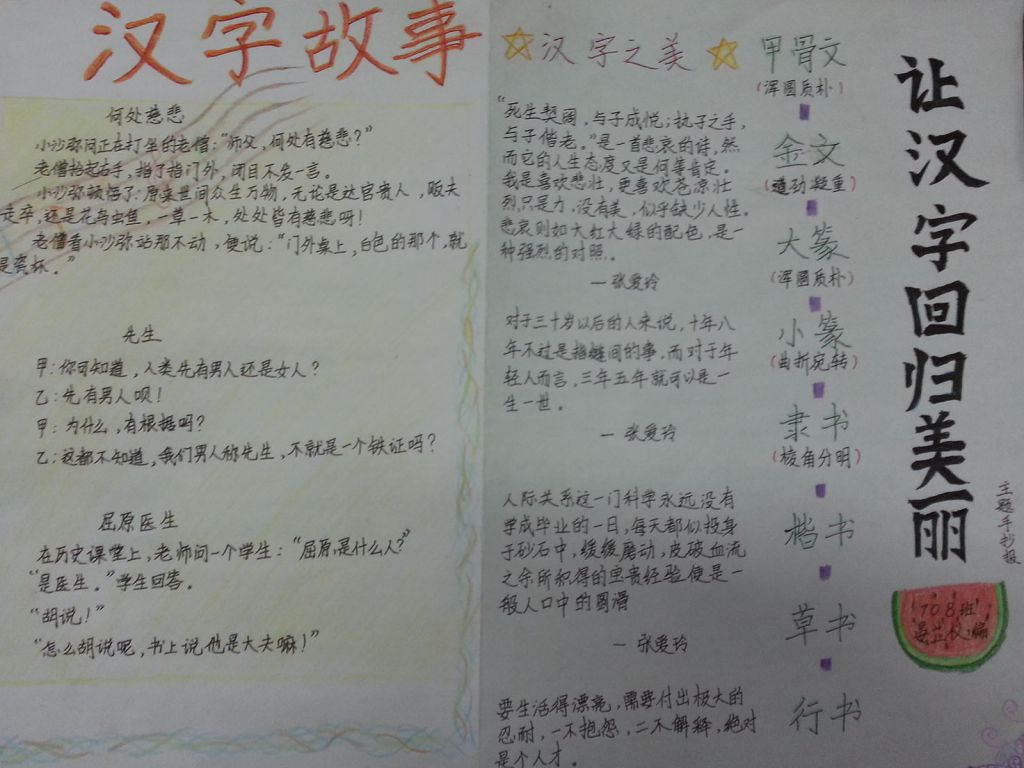 汉字故事
何处慈悲
小沙弥问正在打坐的老僧：“师父，何处有慈悲？”
老僧抬起右手，指了指门外，闭目不发一言。
小沙弥顿悟了：原来世间众生万物，无论是达官贵人，贩夫
走卒，还是花鸟虫鱼，一草一木，处处皆有慈悲呀！
老僧看小沙弥站那不动，便说：“门外桌上，白色的那个，就
是瓷杯。”
先生
甲：你可知道，人类先有男人还是女人？
乙：先有男人呗！
甲：为什么，有根据吗？
乙：这都不知道，我们男人称先生，不就是一个铁证吗？
屈原医生
在历史课堂上，老师问一个学生：“屈原是什么人？”
“是医生。”学生回答。
“胡说！”
“怎么胡说呢，书上说他是大夫嘛！”
汉字之美
“死生契阔，与子成悦；执子之手，
与子偕老。”是一首悲哀的诗，然
而它的人生态度又是何等肯定。
我是喜欢悲壮，更喜欢苍凉壮
烈只是力，没有美，似乎缺少人性。
悲哀则如大红大绿的配色，是一
种强烈的对照。
—张爱玲
对于三十岁以后的人来说，十年八
年不过是指缝间的事，而对于年
轻人而言，三年五年就可以是一
生一世。
— 张爱玲
人际关系这一门科学永远没有
学成毕业的一日，每天都似投身
于砂石中，缓缓磨动，皮破血流
之余所积得的宝贵经验便是一
般人口中的圆滑
— 张爱玲
要生活得漂亮，需要付出极大的
忍耐，一不抱怨，二不解释，绝对
是个人才。
甲骨文
（浑圆质朴）
金文
（遒劲凝重）
大篆
（浑圆质朴）
小篆
（曲折宛转）
隶书
（棱角分明）
楷书
草书
行书
让汉字回归美丽
主题手抄报
708班
编